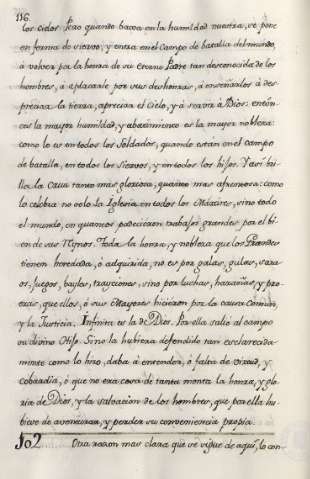 116.
los cielos. Pero quando baxa en la humildad nuestra, se pone
en forma de siervo, y entra en el Campo de batalla del mundo
à volver por la honra de su eterno Padre tan desconocida de los
hombres, à aplacarle por sus deshonras, à enseñarlos à des-
preciar la tierra, apreciar el Cielo, y à servir à Dios: enton-
ces la mayor humildad, y abatimiento es la mayor nobleza:
como lo es en todos los Soldados, quando estan en el campo
de batalla, en todos los Siervos, y en todos los hijos. Y asi bri-
lla la Causa tanto mas gloriosa, quanto mas afrentosa: como
lo celebra no solo la Iglesia en todos los Martires, sino todo
el mundo, en quantos padecieron trabajos grandes por el bi-
en de sus Reynos. Toda la honra, y nobleza que los Grandes
tienen heredada, ò adquirida, no es por galas, gulas, sara-
os, juegos, bayles, trayciones, sino por luchas, hazañas, y pro-
ezas, que ellos, ò sus Mayores hicieron por la causa Comun,
y la Justicia. Infinita es la de Dios. Por ella saliò al campo
su divino Hijo. Sino la hubiera defendido tan esclarecida-
mente como lo hizo, daba à entender, ò falta de virtud, y
cobardia, ò que no era cosa de tanta monta la honra, y glo-
ria de Dios, y la salvacion de los hombres, que por ella hu-
biese de aventurar, y perder su conveniencia propia.
102 Otra razon mas clara que se sigue de aqui, lo con-